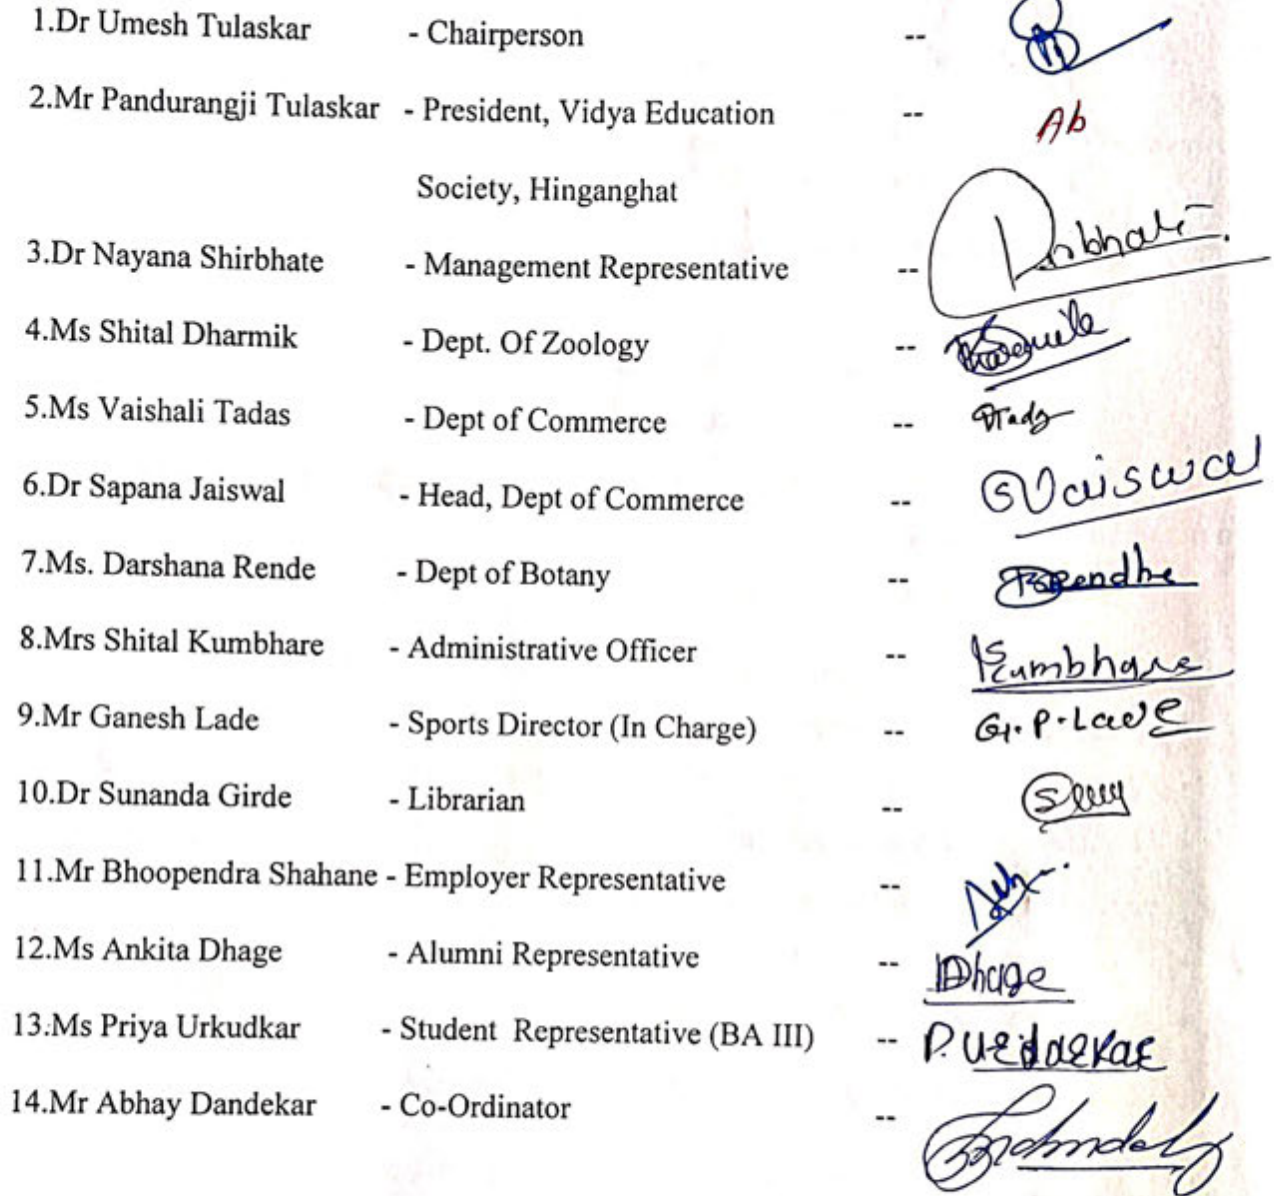 1.Dr Umesh Tulaskar - Chairperson --
2.Mr Pandurangji Tulaskar - President, Vidya Education -- Ab
Society, Hinganghat
3.Dr Nayana Shirbhate - Management Representative --
4.Ms Shital Dharmik - Dept. Of Zoology --
5.Ms Vaishali Tadas - Dept of Commerce --
6.Dr Sapana Jaiswal - Head, Dept of Commerce -- SJaiswal
7.Ms. Darshana Rende - Dept of Botany -- Rendhe
8.Mrs Shital Kumbhare - Administrative Officer -- Kumbhare
9.Mr Ganesh Lade - Sports Director (In Charge) -- G.P.Lade
10.Dr Sunanda Girde - Librarian --
11.Mr Bhoopendra Shahane - Employer Representative --
12.Ms Ankita Dhage - Alumni Representative -- ADhage
13.Ms Priya Urkudkar - Student Representative (BA III) --
14.Mr Abhay Dandekar - Co-Ordinator --